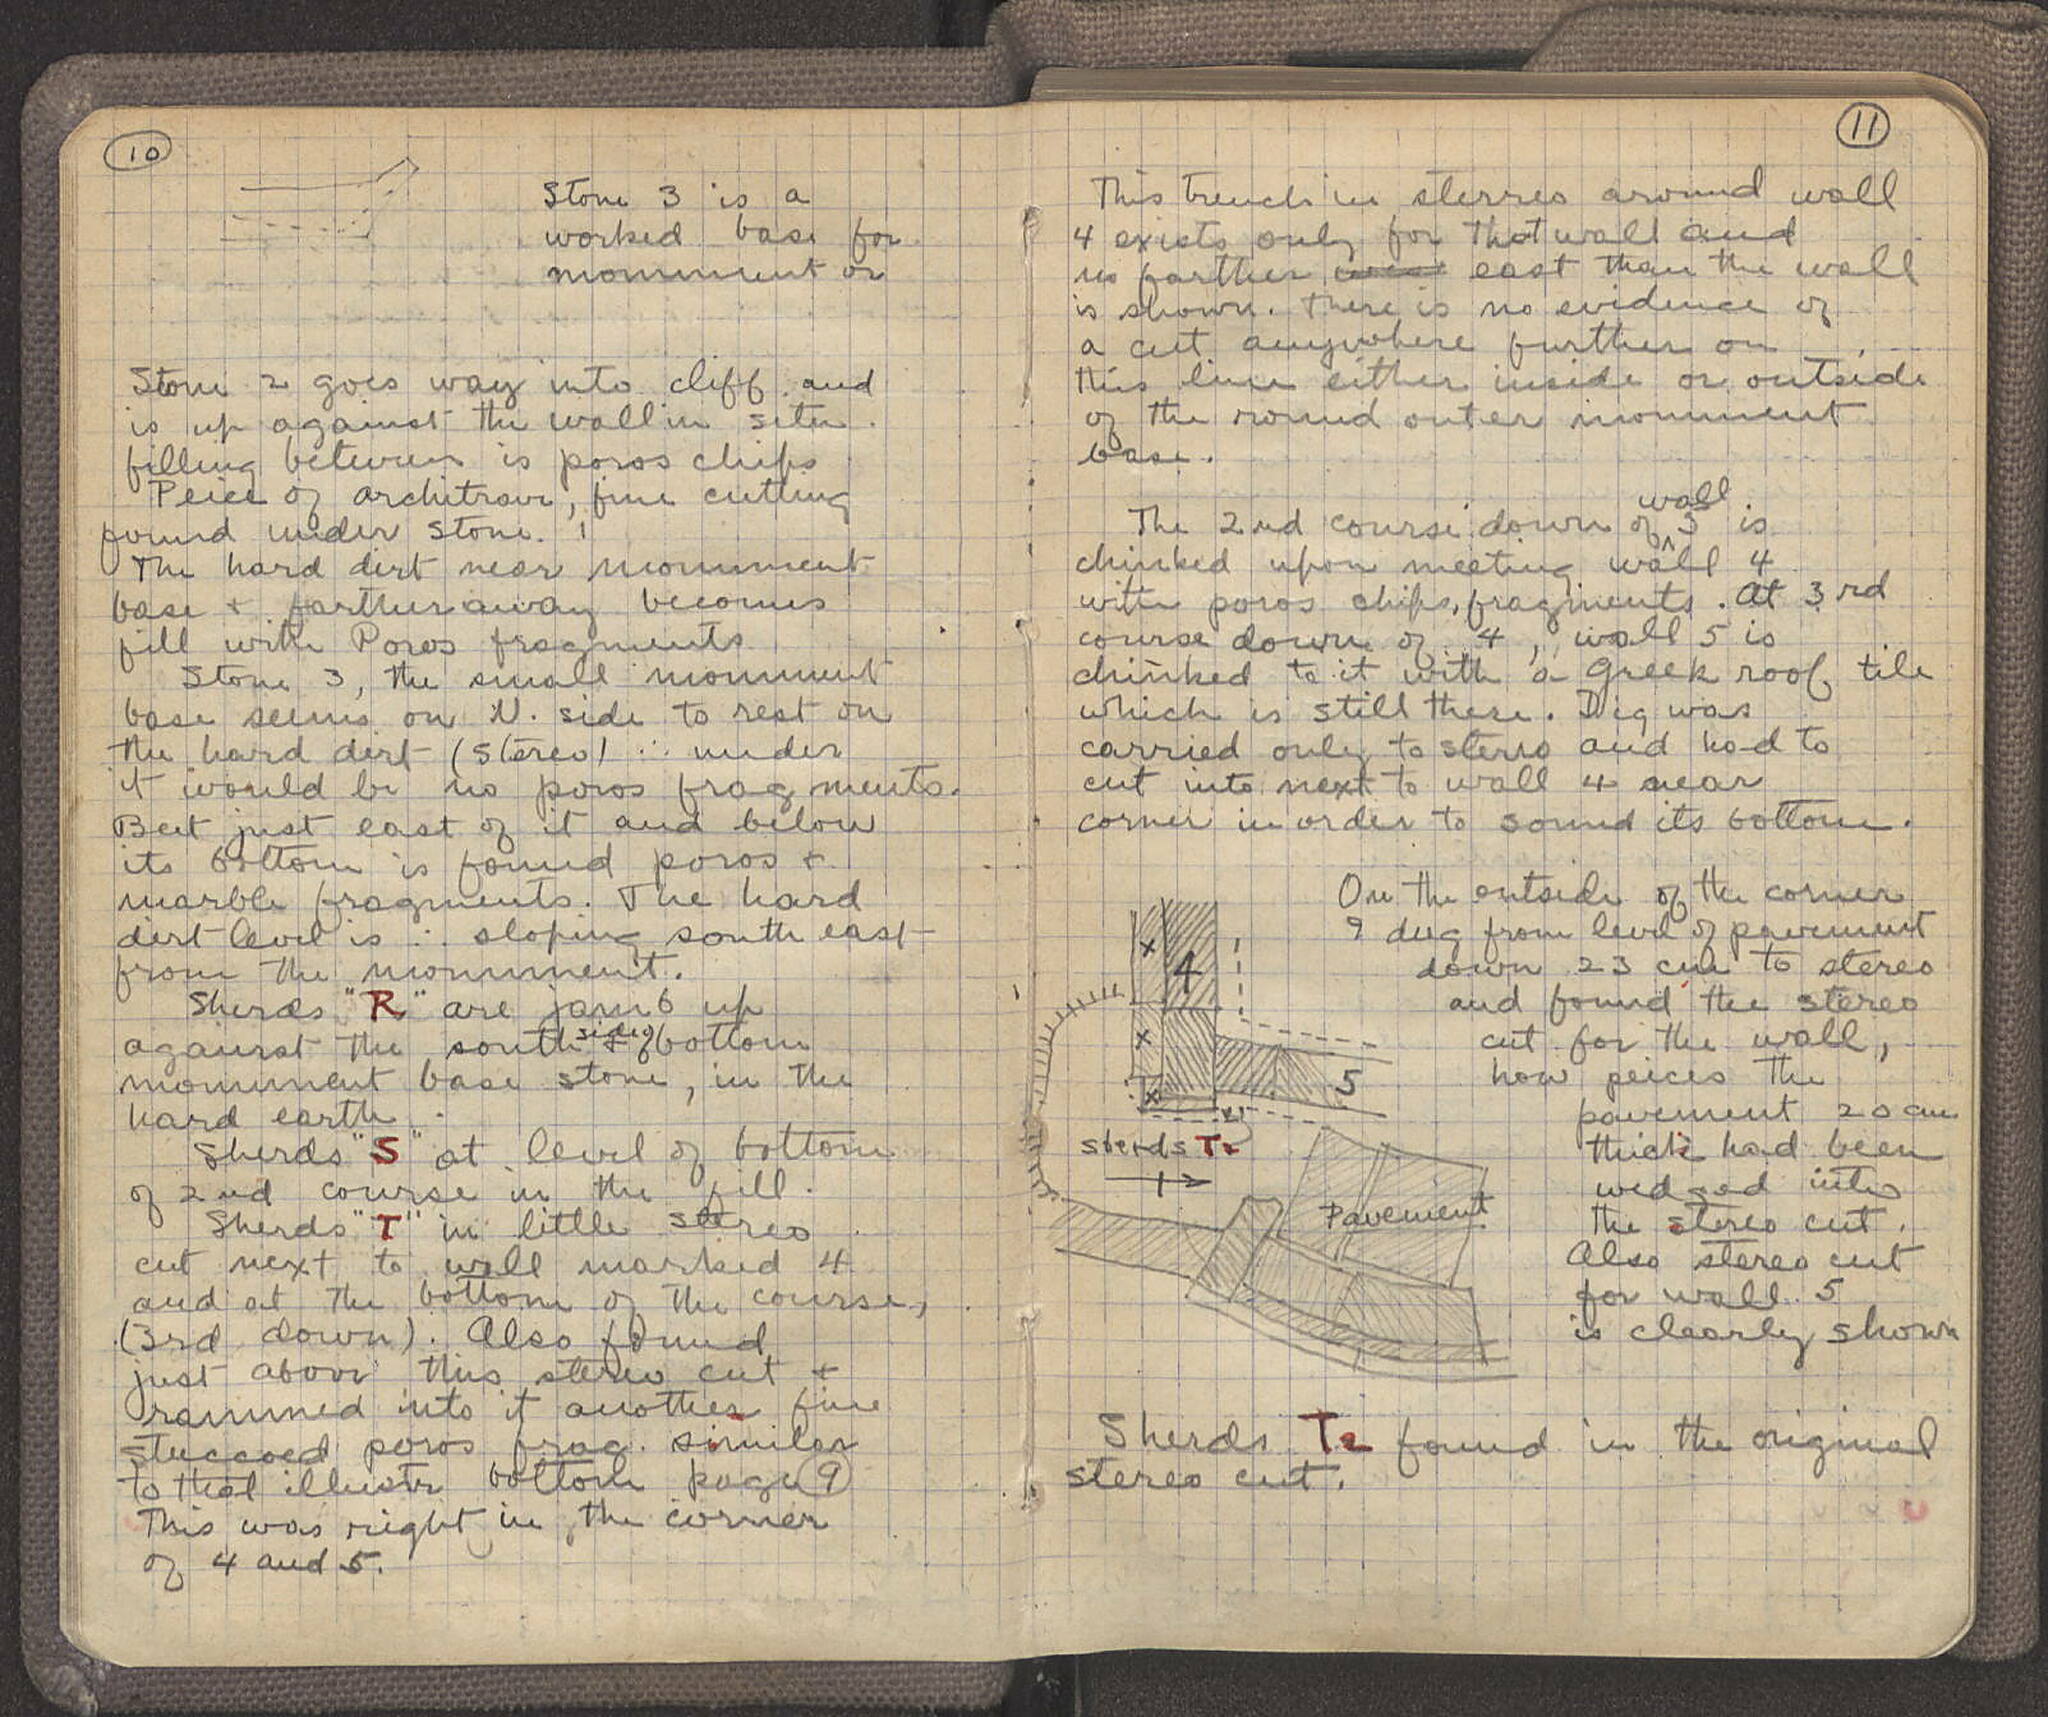 10
Stone 3 is a
worked base for
monument or
Stone 2 goes way into cliff and
is up against the wall in situ.
filling between is poros chips
Peice of architrave, fine cutting
found under stone.
The hard dirt near monument
base + farther away becomes
fill with Poros fragments
Stone 3, the small monument
base seems on N. side to rest on
the hard dirt (stereo) ∴ under
it would be no poros fragments.
But just east of it and below
its bottom is found poros +
marble fragments. The hard
dirt level is ∴ sloping south east
from the monument.
Sherds "R" are jamb up
against the south side + of bottom
monument base stone, in the
hard earth.
Sherds "S" at level of bottom
of 2nd course in the fill.
Sherds "T" in little stereo
cut next to wall marked 4
and at the bottom of the course,
(3rd down). Also found
just above this stereo cut +
rammed into it another fine
stuccoed poros frag. similar
to that illustr bottom page 9
This was right in the corner
of 4 and 5.
11
This trench in sterreo around wall
4 exists only for that wall and
no farther east than the wall
is shown. There is no evidence of
a cut anywhere further on
this line either inside or outside
of the round outer monument
base.
The 2nd course down of wall 3 is
chinked upon meeting wall 4
with poros chips, fragments. At 3rd
course down of 4, wall 5 is
chinked to it with a Greek roof tile
which is still there. Dig was
carried only to stereo and had to
cut into next to wall 4 near
corner in order to sound its bottom.
On the outside of the corner
I dug from level of pavement
down 23 cm to stereo
and found the stereo
cut for the wall,
how peices the
pavement 20 cm
thick had been
wedged into
the stereo cut.
Also stereo cut
for wall 5
is clearly shown
x
4
x
x
5
sherds T2
12
Pavement
Sherds T2 found in the original
stereo cut.